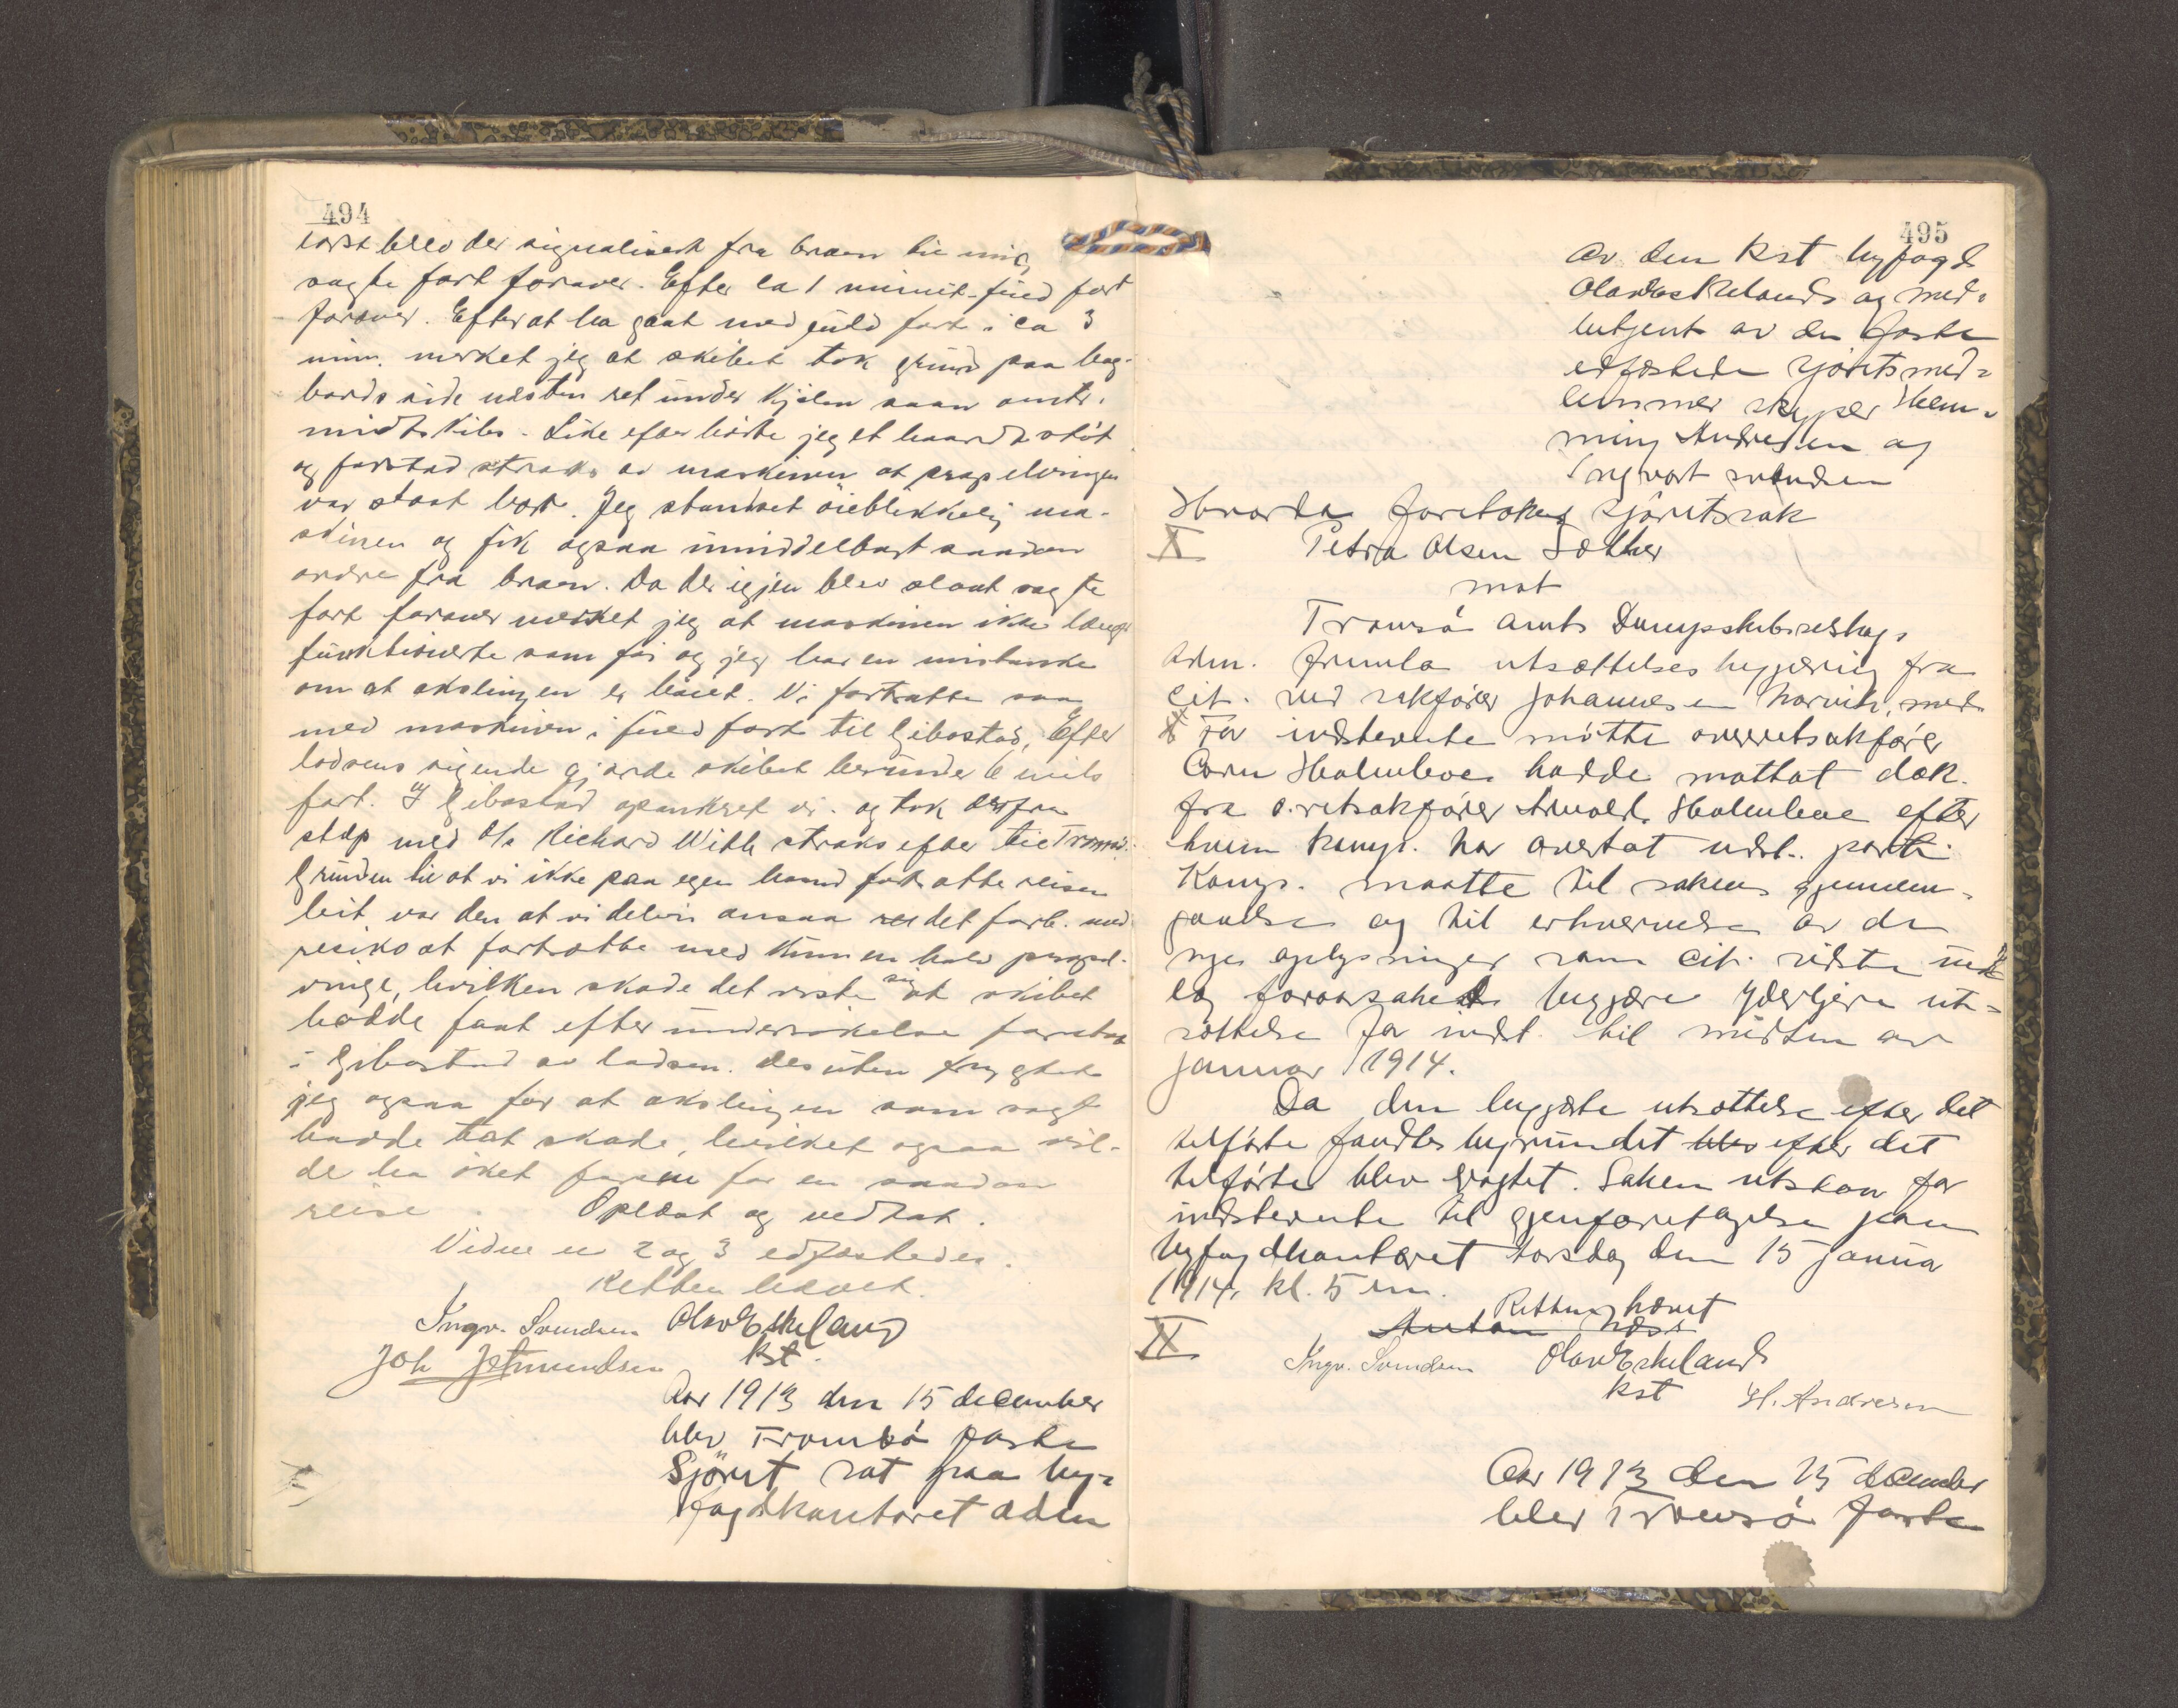 494
først blev der signaliseret fra broen til mig
sagte fart forover. Efter ca 1 minut fuld fart
forover. Efter at ha gaat med fuld fart i ca 3
min. merket jeg at skibet tok grund paa bag-
bords side næsten ret under kjølen saan omtr.
midtskibs. Like efter hørte jeg et haardt støt
og forstod straks av maskinen at propelvingen
var slaat bort. Jeg stanset øieblikkelig ma-
skinen og fik ogsaa umiddelbart saadan
ordre fra broen. Da der igjen blev slaat sagte
fart forover merket jeg at maskinen ikke længer
funktionerte som før og jeg har en mistanke
om at akslingen er bøiet. Vi fortsatte saa
med maskinen i fuld fart til Gibostad, Efter
lodsens sigende gjorde skibet herunder 6 mils
fart. I Gibostad opankret vi. og tok derfra
slæp med D/s Richard With straks efter til Tromsø.
Grunden til at vi ikke paa egen haand fortsatte reisen
hit var den at vi delvis ansaa det forb. med
resiko at fortsætte med kun en halv propel-
vinge, hvilken skade det viste sig at skibet
hadde faat efter undersøkelse foretat
i Gibostad av lodsen. Desuten frygtet
jeg ogsaa for at akslingen som sagt
hadde tat skade, hvilket ogsaa vil-
de ha øket faren for en saadan
reise. Oplæst og vedtat.
Vidne nr 2 og 3 edfæstedes.
Retten hævet.
Ingv. Svendsen Olav Eskeland
Joh Jetmundsen kst.
Aar 1913 den 15 december
blev Tromsø faste
Sjöret sat paa by-
fogdkontoret adm
495
av den kst byfogd
Olav Eskeland og med-
betjent av de faste
edfæstede sjøretsmed-
lemmer skipper Hem-
ming Andresen og
Ingvart Svendsen
Hvorda foretokes sjøretssak
X Petra Olsen Solber
mot
Tromsø amts Dampskibsselskap
Adm. fremla utsættelsesbegjæring fra
cit. ved sakfører Johannesen Narvik, med
X For indstevnte møtte overretssakfører
Corn Holmboe hadde mottat dok.
fra o.retssakfører Arnold Holmboe efter
hvem komp. har overtat indst. parti.
Komp. maatte til sakens gjennem-
gaaelse og til erhvervelse av de
nye oplysninger som cit. sidste
foraarsaket begjære yderligere ut-
sættelse for indst. til midten av
januar 1914.
Da den begjærte utsættelse efter det
telførte fandtes begrundet blev efter det
telførte blev vogtet. Saken utstaar for
indstevnte til gjenforetagelse paa
byfogdkontoret torsdag den 15 janua
1914, kl. 5 em.
Retten hævet
X Anton Næss
Ingv. Svendsen Olav Eskeland
kst H. Andresen
Aar 1913 den 15 december
blev Tromsø faste